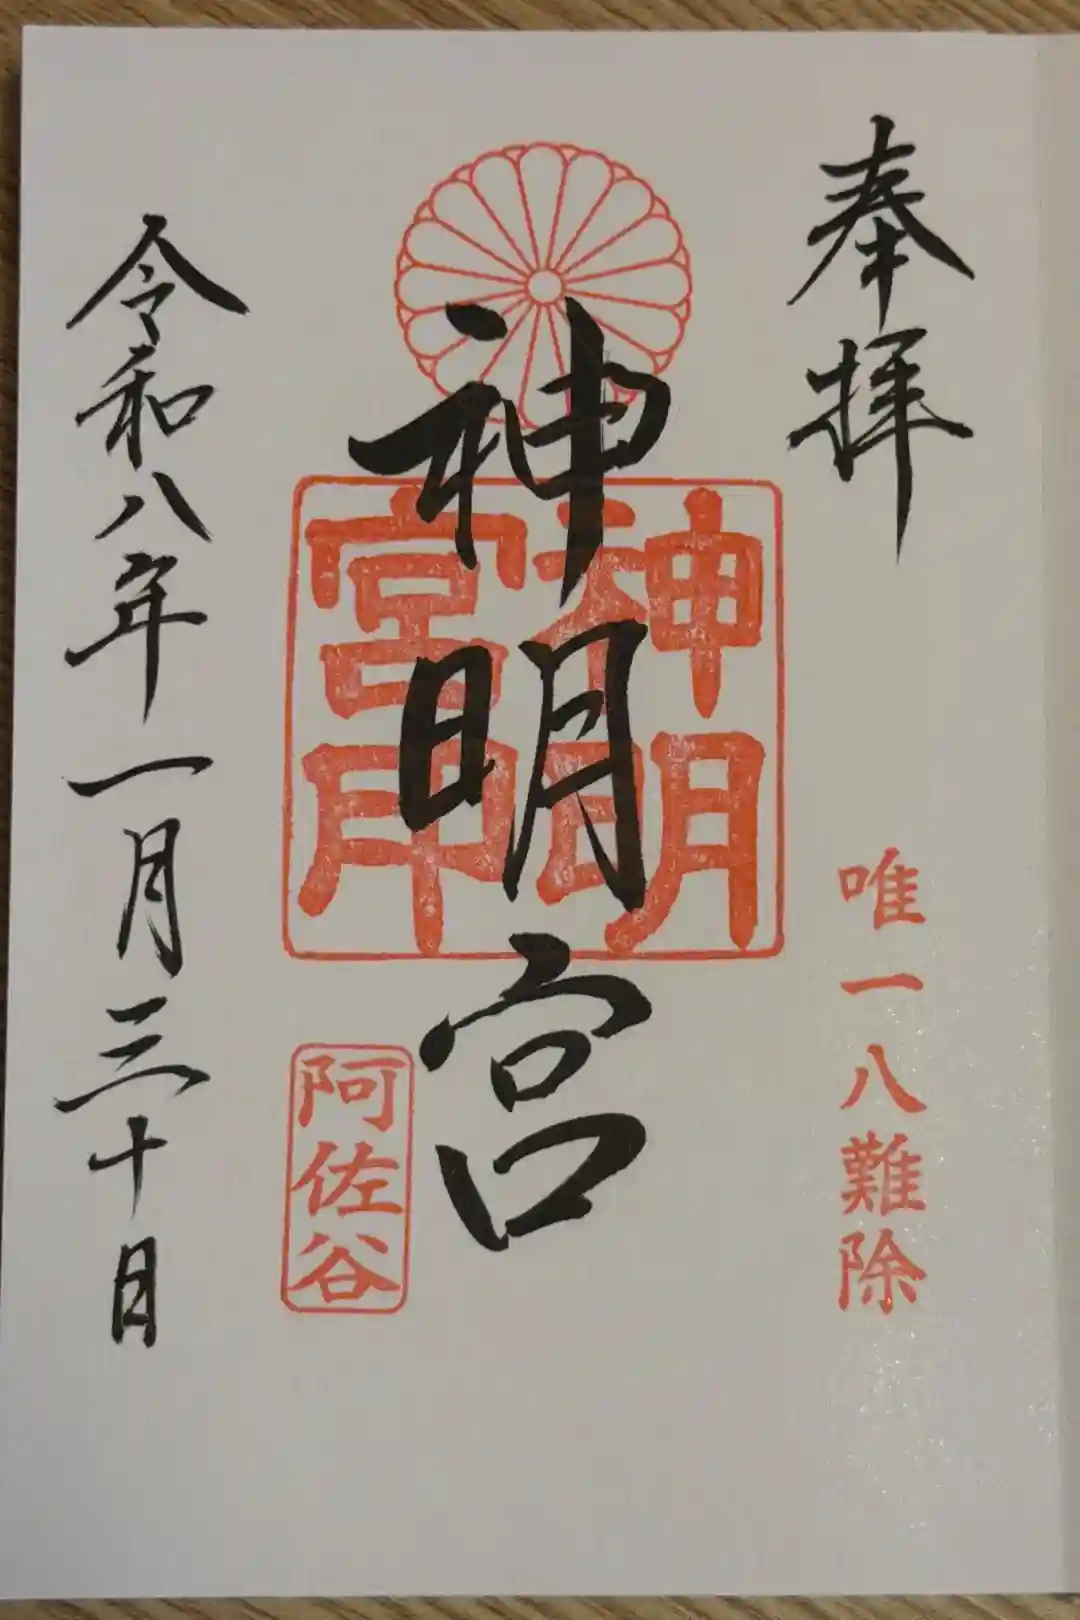 奉拝
唯一八難除
神明宮
神明
宮印
阿佐谷
令和八年一月三十日